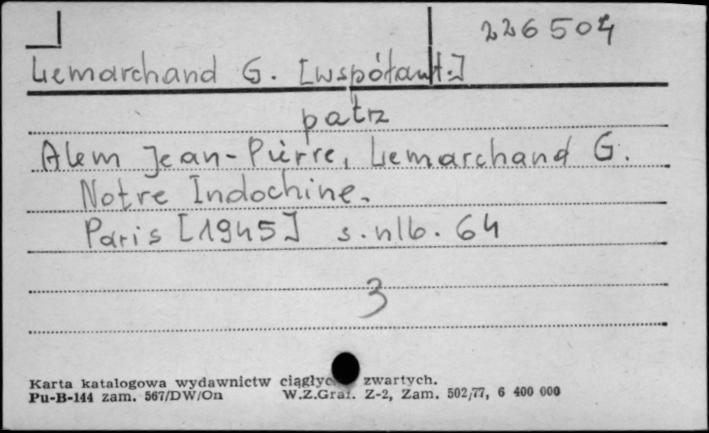 226504
Lemarchand G. [współaut.]
patrz
Alem Jean-Pierre, Lemarchand G.
Notre Indochine.
Paris [1945] s. nlb. 64
3
Karta katalogowa wydawnictw zwartych.
Pu-B-144 zam. 567/DW/On W.Z.Graf. Z-2, Zam. 502/77, 6 400 000